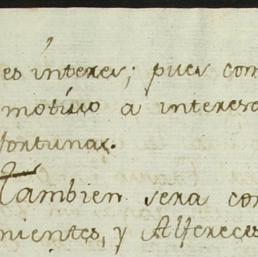 es ínteres; pues com
motívo a interesa
fortunas.
Tambien sera con
nientes, y Alfereces